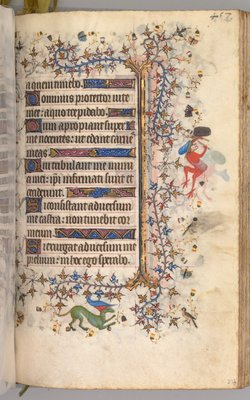 aquem timebo.
Dominus protector vite
mee: a quo trepidabo.
Dum apropiant super
me nocentes: ut edant carne
meas
Qui tribulant me inimi
mei: ipi infirmati sunt et
ceciderunt.
Si consistant adversum
me castra: non timebit cor
meum
Si exurgat adversum me
prelium: in hoc ego sperabo.